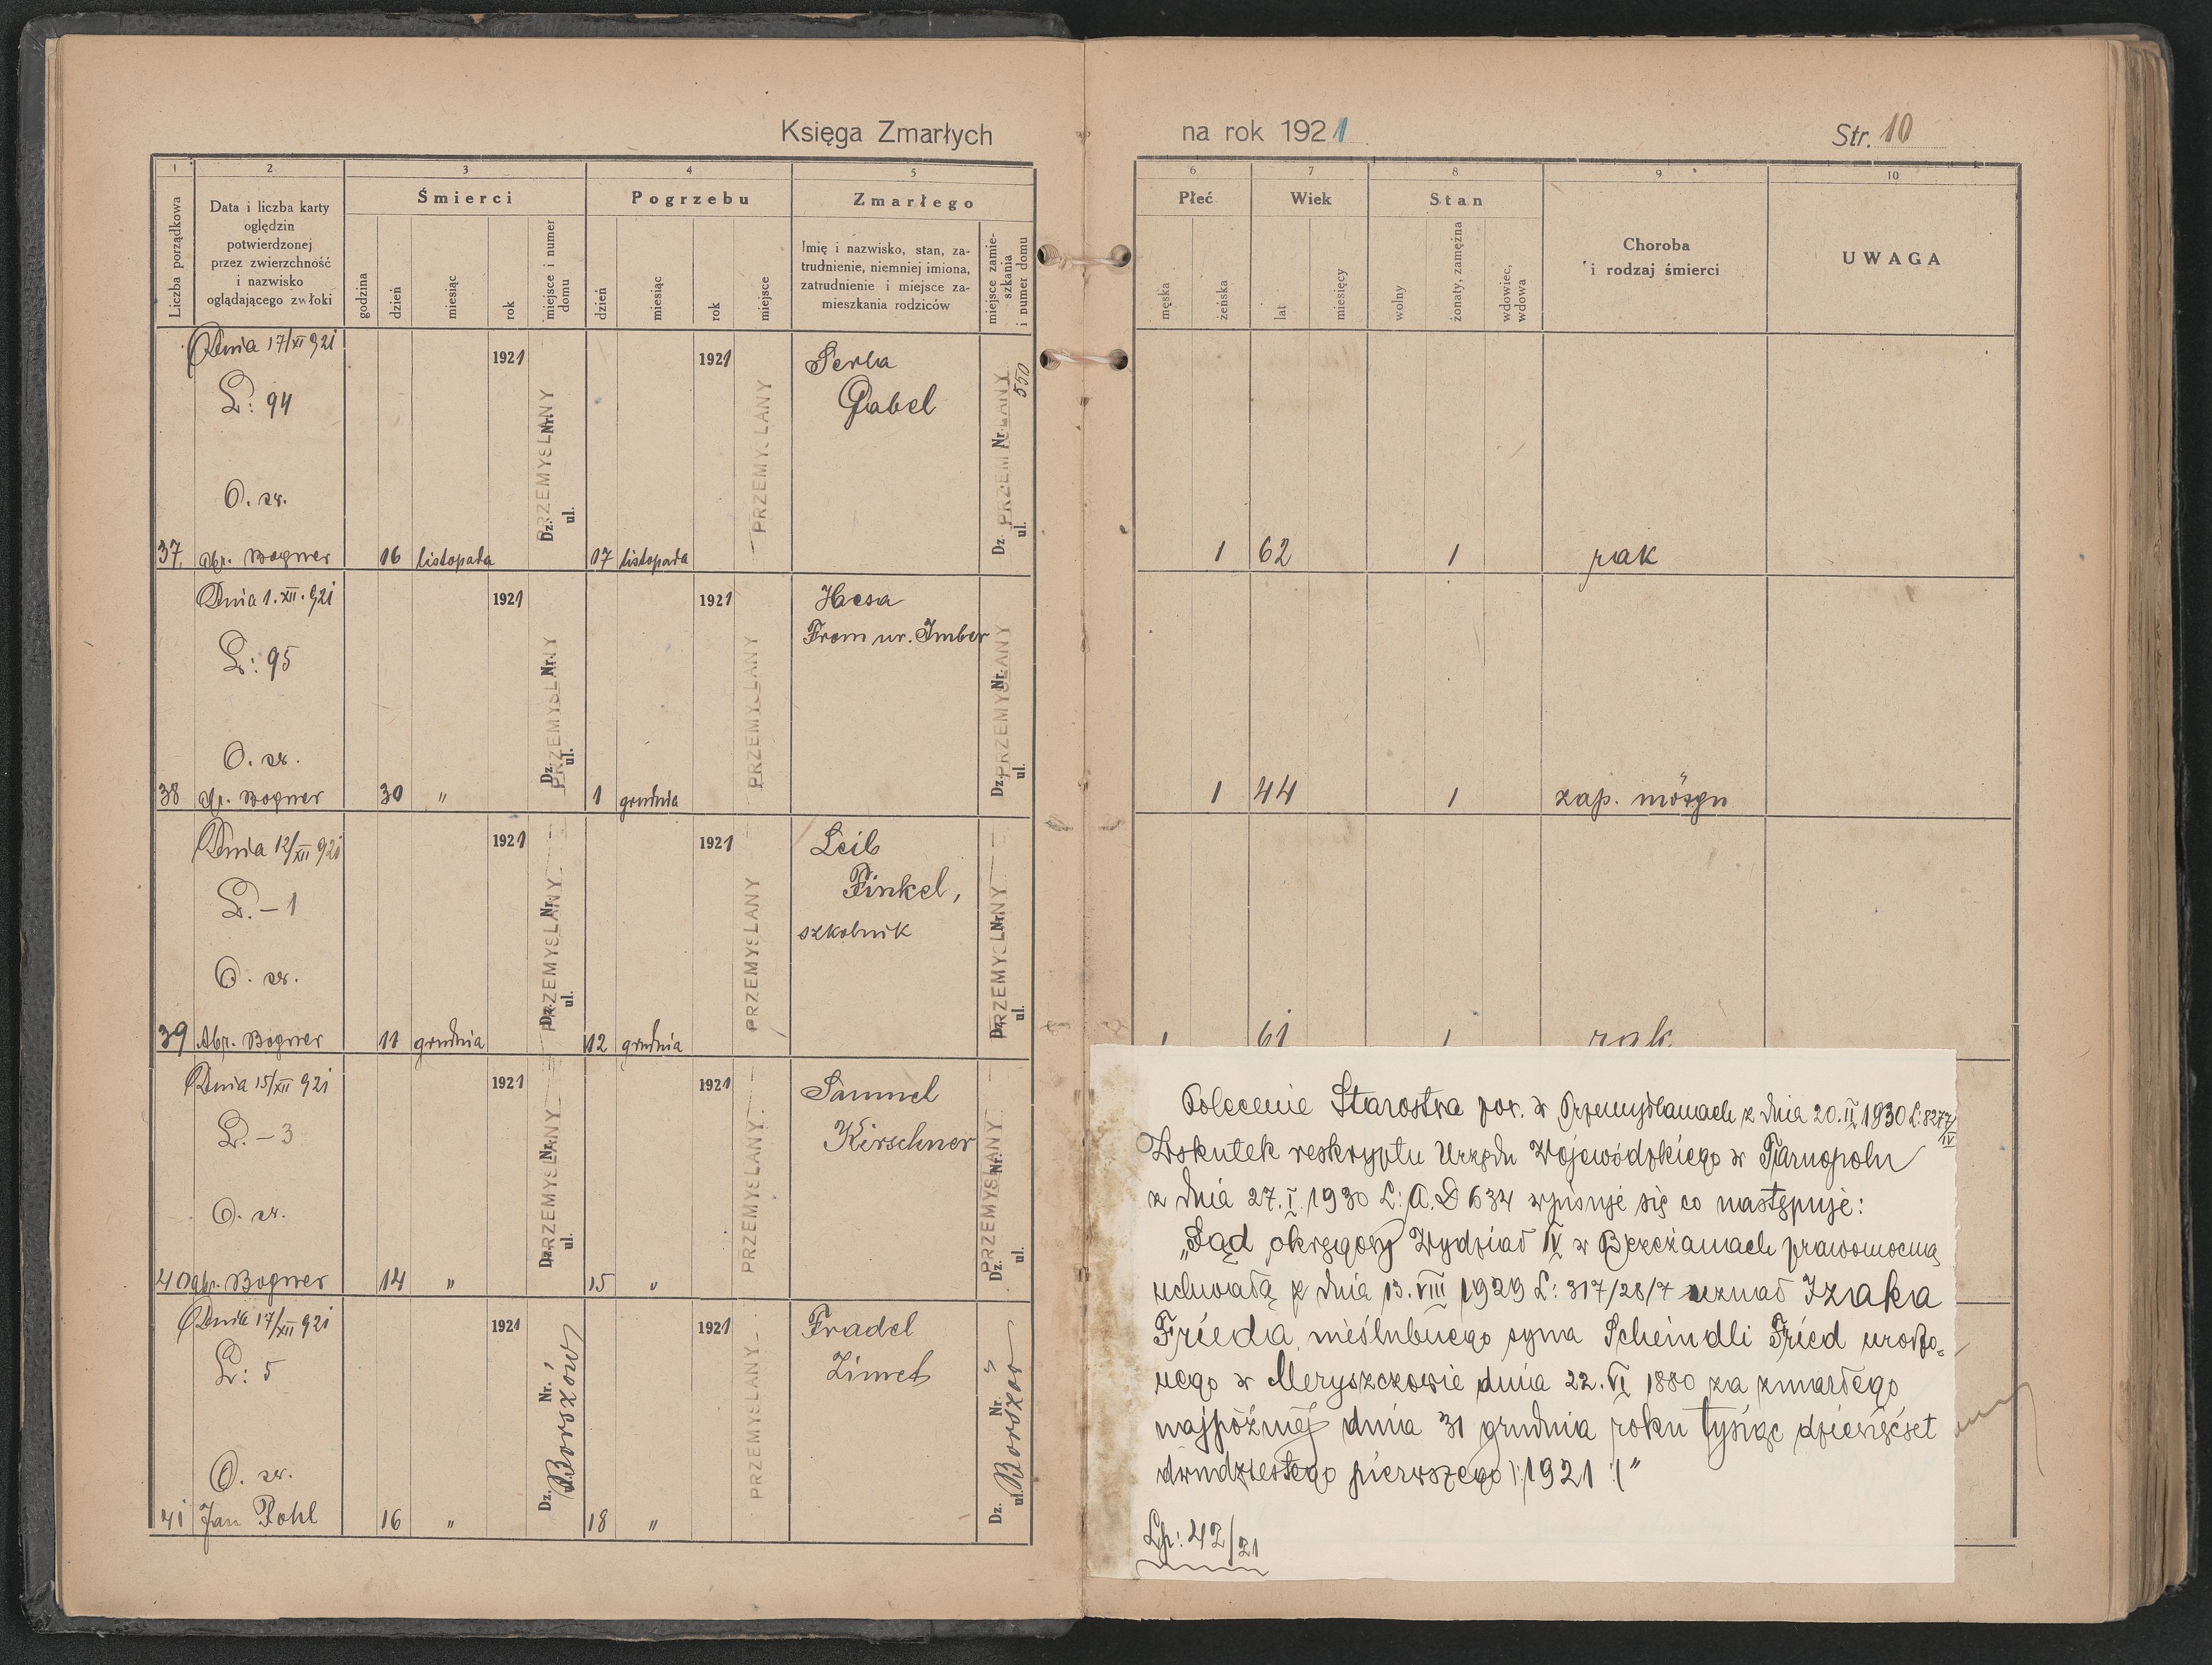 Księga Zmarłych
na rok 1921
Str. 10
1 2 3 4 5
Liczba porządkowa
Data i liczba karty
oględzin
potwierdzonej
przez zwierzchność
i nazwisko
oglądającego zwłoki
Śmierci
godzina
dzień
miesiąc
rok
miejsce i numer
domu
Pogrzebu
dzień
miesiąc
rok
miejsce
Zmarłego
Imię i nazwisko, stan, za-
trudnienie, niemniej imiona,
zatrudnienie i miejsce za-
mieszkania rodziców
miejsce zamie-
szkania
i numer domu
6 7 8 9 10
Płeć
męska
żeńska
Wiek
lat
miesięcy
Stan
wolny
żonaty, zamężna
wdowiec,
wdowa
Choroba
i rodzaj śmierci
UWAGA
Dnia 17/XI 921
L: 94
O. zw.
37. Abr. Bogner
16 listopada 1921
Dz. Nr. ul.
PRZEMYSLANY
17 listopada 1921
PRZEMYSLANY
Serla
Gabel
Dz. Nr. ul.
PRZEMYSLANY
550
1 62 1 rak
Dnia 1. XII. 921
L: 95
O. zw.
38 Abr. Bogner
30 " 1921
Dz. Nr. ul.
PRZEMYSLANY
1 grudnia 1921
PRZEMYSLANY
Hesa
From ur. Imber
Dz. Nr. ul.
PRZEMYSLANY
1 44 1 zap. mózgu
Dnia 12/XII 921
L. - 1
O. zw.
39 Abr. Bogner
11 grudnia 1921
Dz. Nr. ul.
PRZEMYSLANY
12 grudnia 1921
PRZEMYSLANY
Leib
Finkel,
szkolnik
Dz. Nr. ul.
PRZEMYSLANY
1 61 1 rak
Dnia 15/XII 921
L. - 3
O. zw.
40 Abr. Bogner
14 " 1921
Dz. Nr. ul.
PRZEMYSLANY
15 " 1921
PRZEMYSLANY
Samuel
Kirschner
Dz. Nr. ul.
PRZEMYSLANY
Dnia 17/XII 921
L: 5
O. zw.
41 Jan Pohl
16 " 1921
Dz. Nr.
Borszów
18 " 1921
PRZEMYSLANY
Fradel
Zimet
Dz. Nr. ul.
Borszów
Polecenie Starostwa pow. w Przemyślanach z dnia 20.II 1930 L: 8277/IV
Wskutek reskryptu Urzędu Wojewódzkiego w Tarnopolu
z dnia 27. I. 1930 L: A.D 634 wpisuje się co następuje:
„Sąd okręgowy Wydział IV w Brzeżanach prawomocną
uchwałą z dnia 13. VIII 1929 L: 317/28/7 uznał Izaka
Frieda nieślubnego syna Scheindli Fried urodzo-
nego w Meryszczowie dnia 22. VI 1880 za zmarłego
najpóźniej dnia 31 grudnia roku tysiąc dziewięćset
dwudziestego pierwszego /:1921:/"
Lp: 42/21